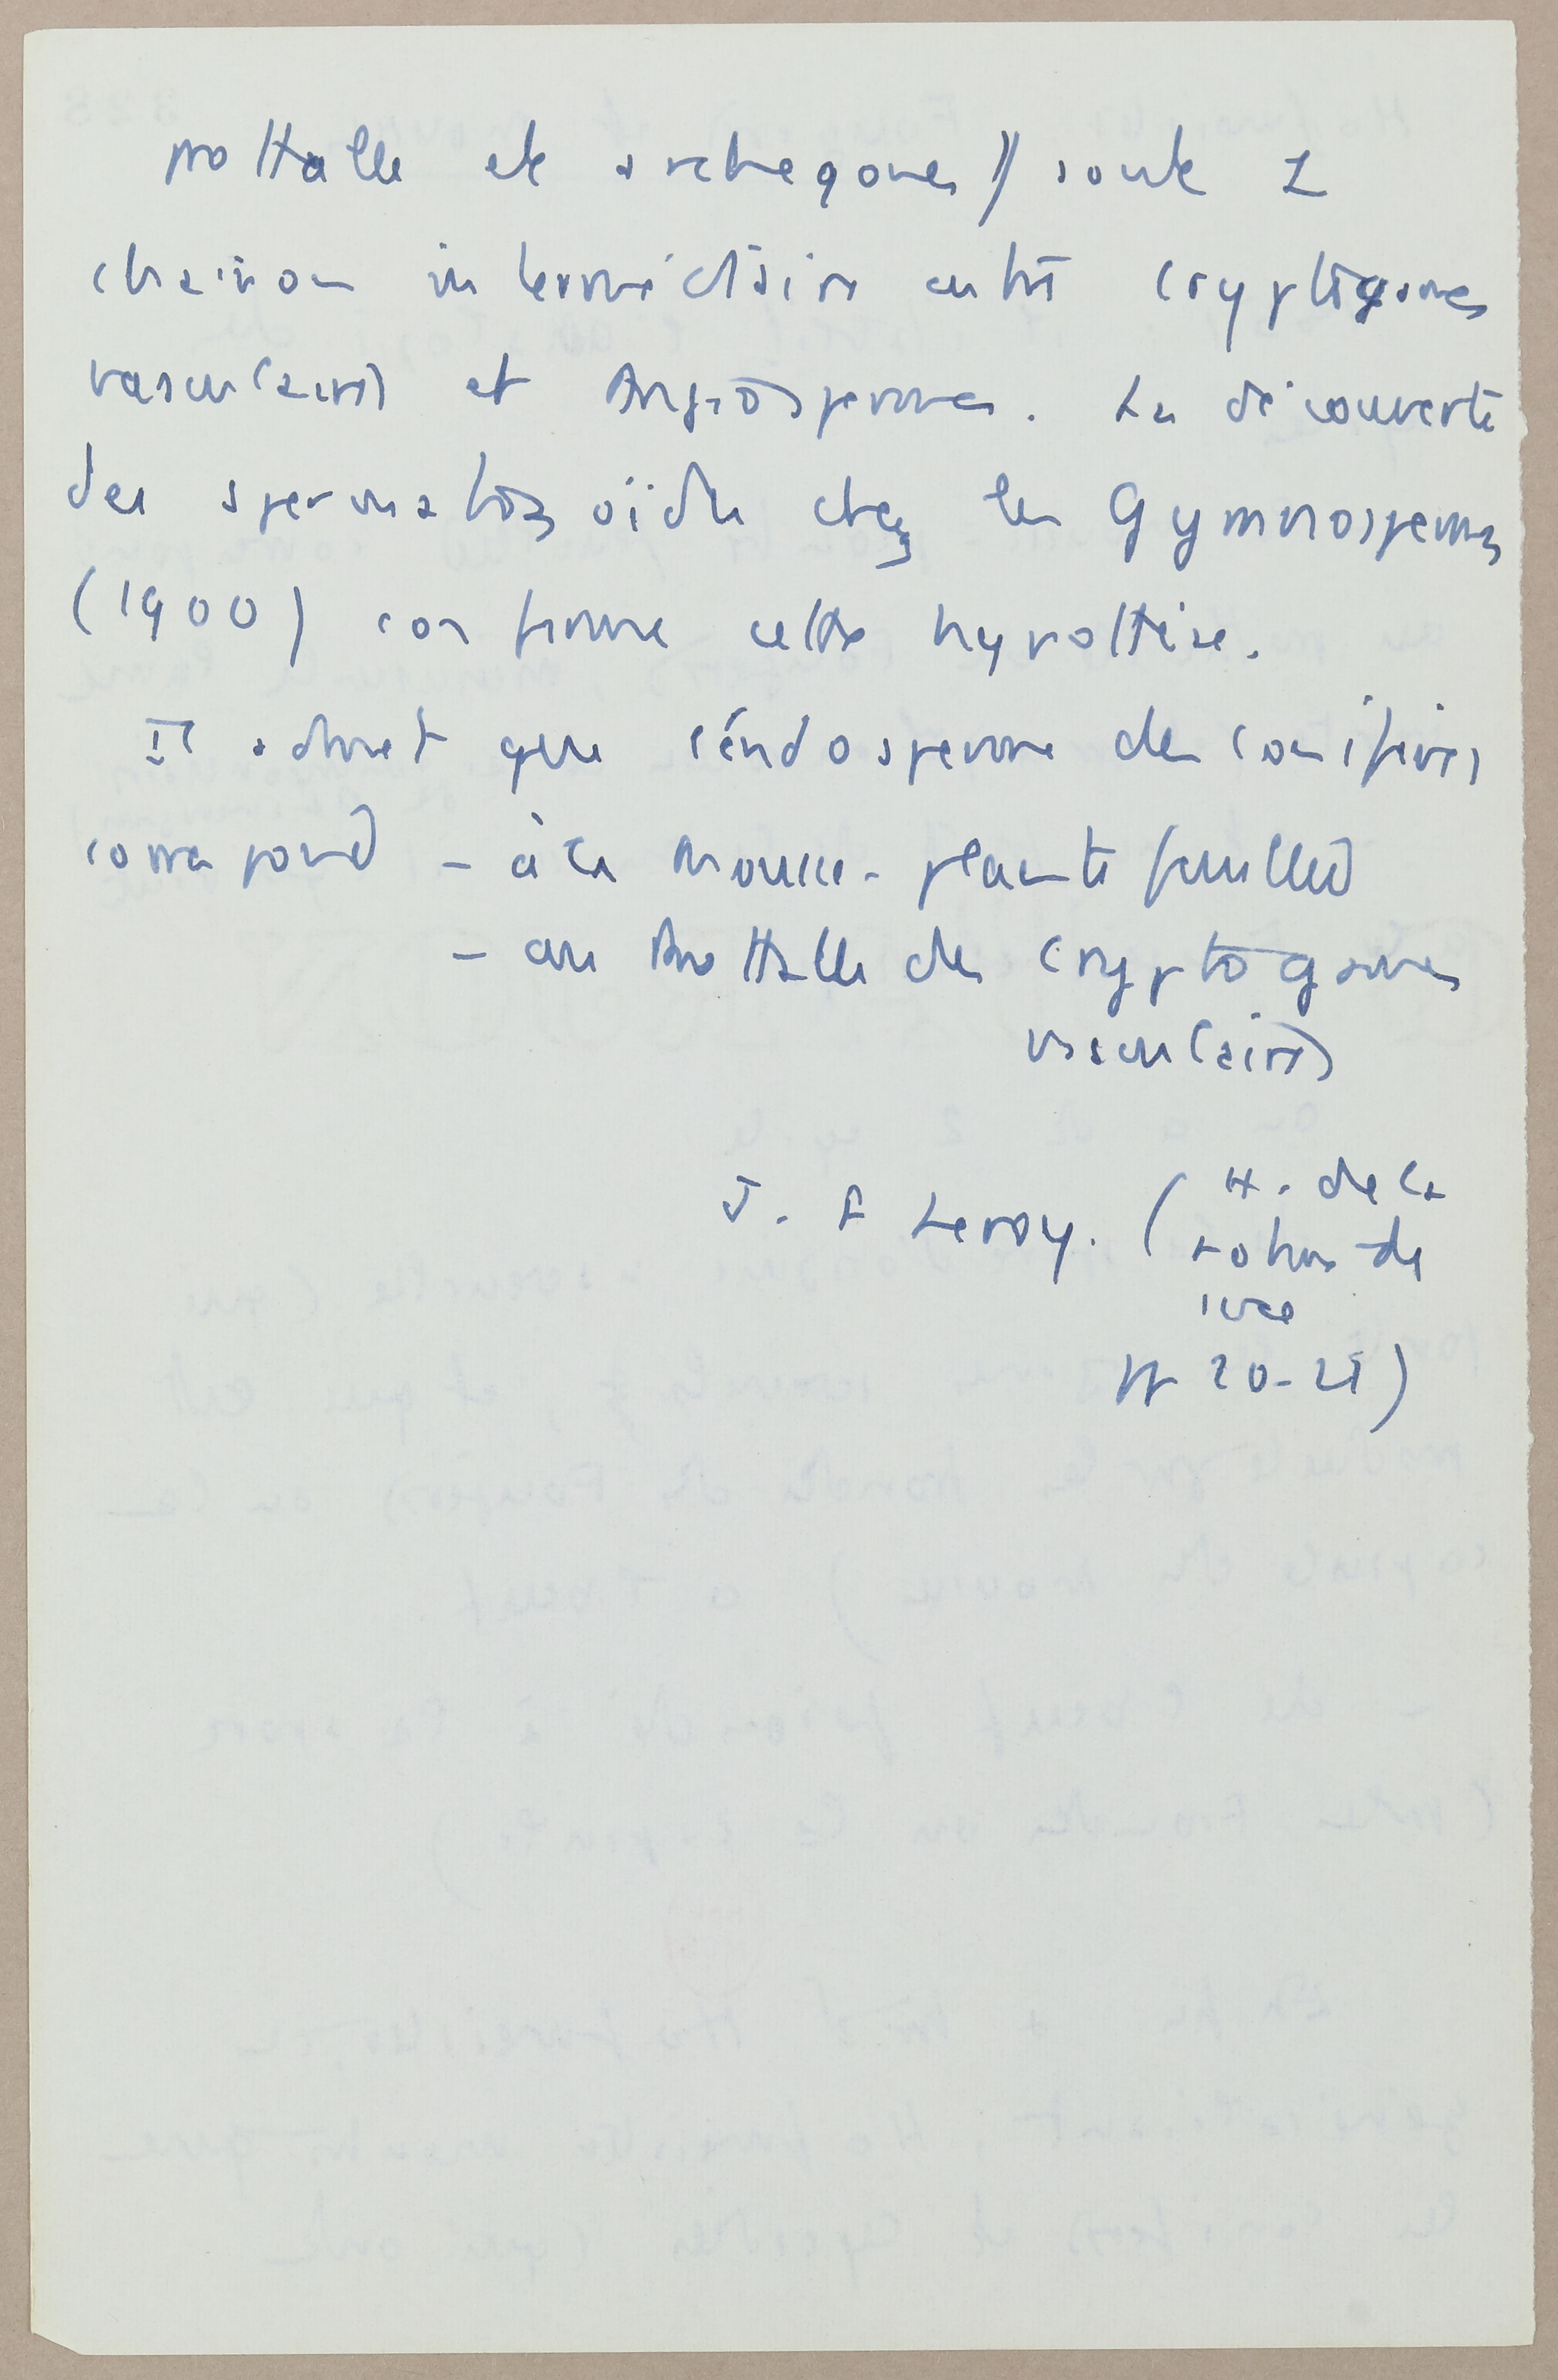 prothalle et archegones) sont 1
chainon intermédiaire entre cryptogames
vasculaires et Angiospermes. La découverte
des spermatozoïdes chez les Gymnospermes
(1900) confirme cette hypothèse.
Il admet que l'endosperme des conifères
correspond - à la mousse - plante feuillée
- au Prothalle des cryptogames
vasculaires
J. F Leroy. (H. de la
pp 20-21)